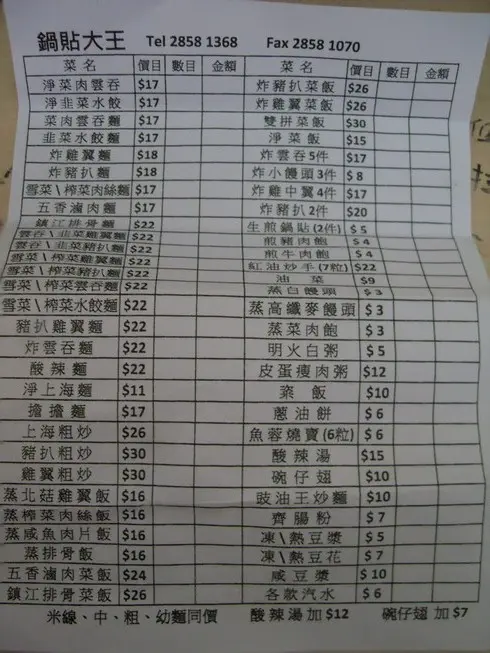 鍋貼大王 Tel 2858 1368 Fax 2858 1070
菜名 價目 數目 金額
淨菜肉雲吞 $17
淨韭菜水餃 $17
菜肉雲吞麵 $17
韭菜水餃麵 $17
炸雞翼麵 $18
炸豬扒麵 $18
雪菜\榨菜肉絲麵 $17
五香滷肉麵 $17
鎮江排骨麵 $22
雲吞\韭菜雞翼麵 $22
雲吞\韭菜豬扒麵 $22
雪菜\榨菜雞翼麵 $22
雪菜\榨菜豬扒麵 $22
雪菜\榨菜雲吞麵 $22
雪菜\榨菜水餃麵 $22
豬扒雞翼麵 $22
炸雲吞麵 $22
酸辣麵 $22
淨上海麵 $11
擔擔麵 $17
上海粗炒 $26
豬扒粗炒 $30
雞翼粗炒 $30
蒸北菇雞翼飯 $16
蒸榨菜肉絲飯 $16
蒸咸魚肉片飯 $16
蒸排骨飯 $16
五香滷肉菜飯 $24
鎮江排骨菜飯 $26
菜名 價目 數目 金額
炸豬扒菜飯 $26
炸雞翼菜飯 $26
雙拼菜飯 $30
淨菜飯 $15
炸雲吞5件 $17
炸小饅頭3件 $8
炸雞中翼4件 $17
炸豬扒2件 $20
生煎鍋貼(2件) $5
煎豬肉飽 $4
煎牛肉飽 $4
紅油炒手(7粒) $22
油菜 $9
蒸白饅頭 $3
蒸高纖麥饅頭 $3
蒸菜肉飽 $3
明火白粥 $5
皮蛋瘦肉粥 $12
粢飯 $10
蔥油餅 $6
魚蓉燒賣(6粒) $6
酸辣湯 $15
碗仔翅 $10
豉油王炒麵 $10
齊腸粉 $7
凍\熱豆漿 $5
凍\熱豆花 $7
咸豆漿 $10
各款汽水 $6
米線、中、粗、幼麵同價 酸辣湯加$12 碗仔翅加$7